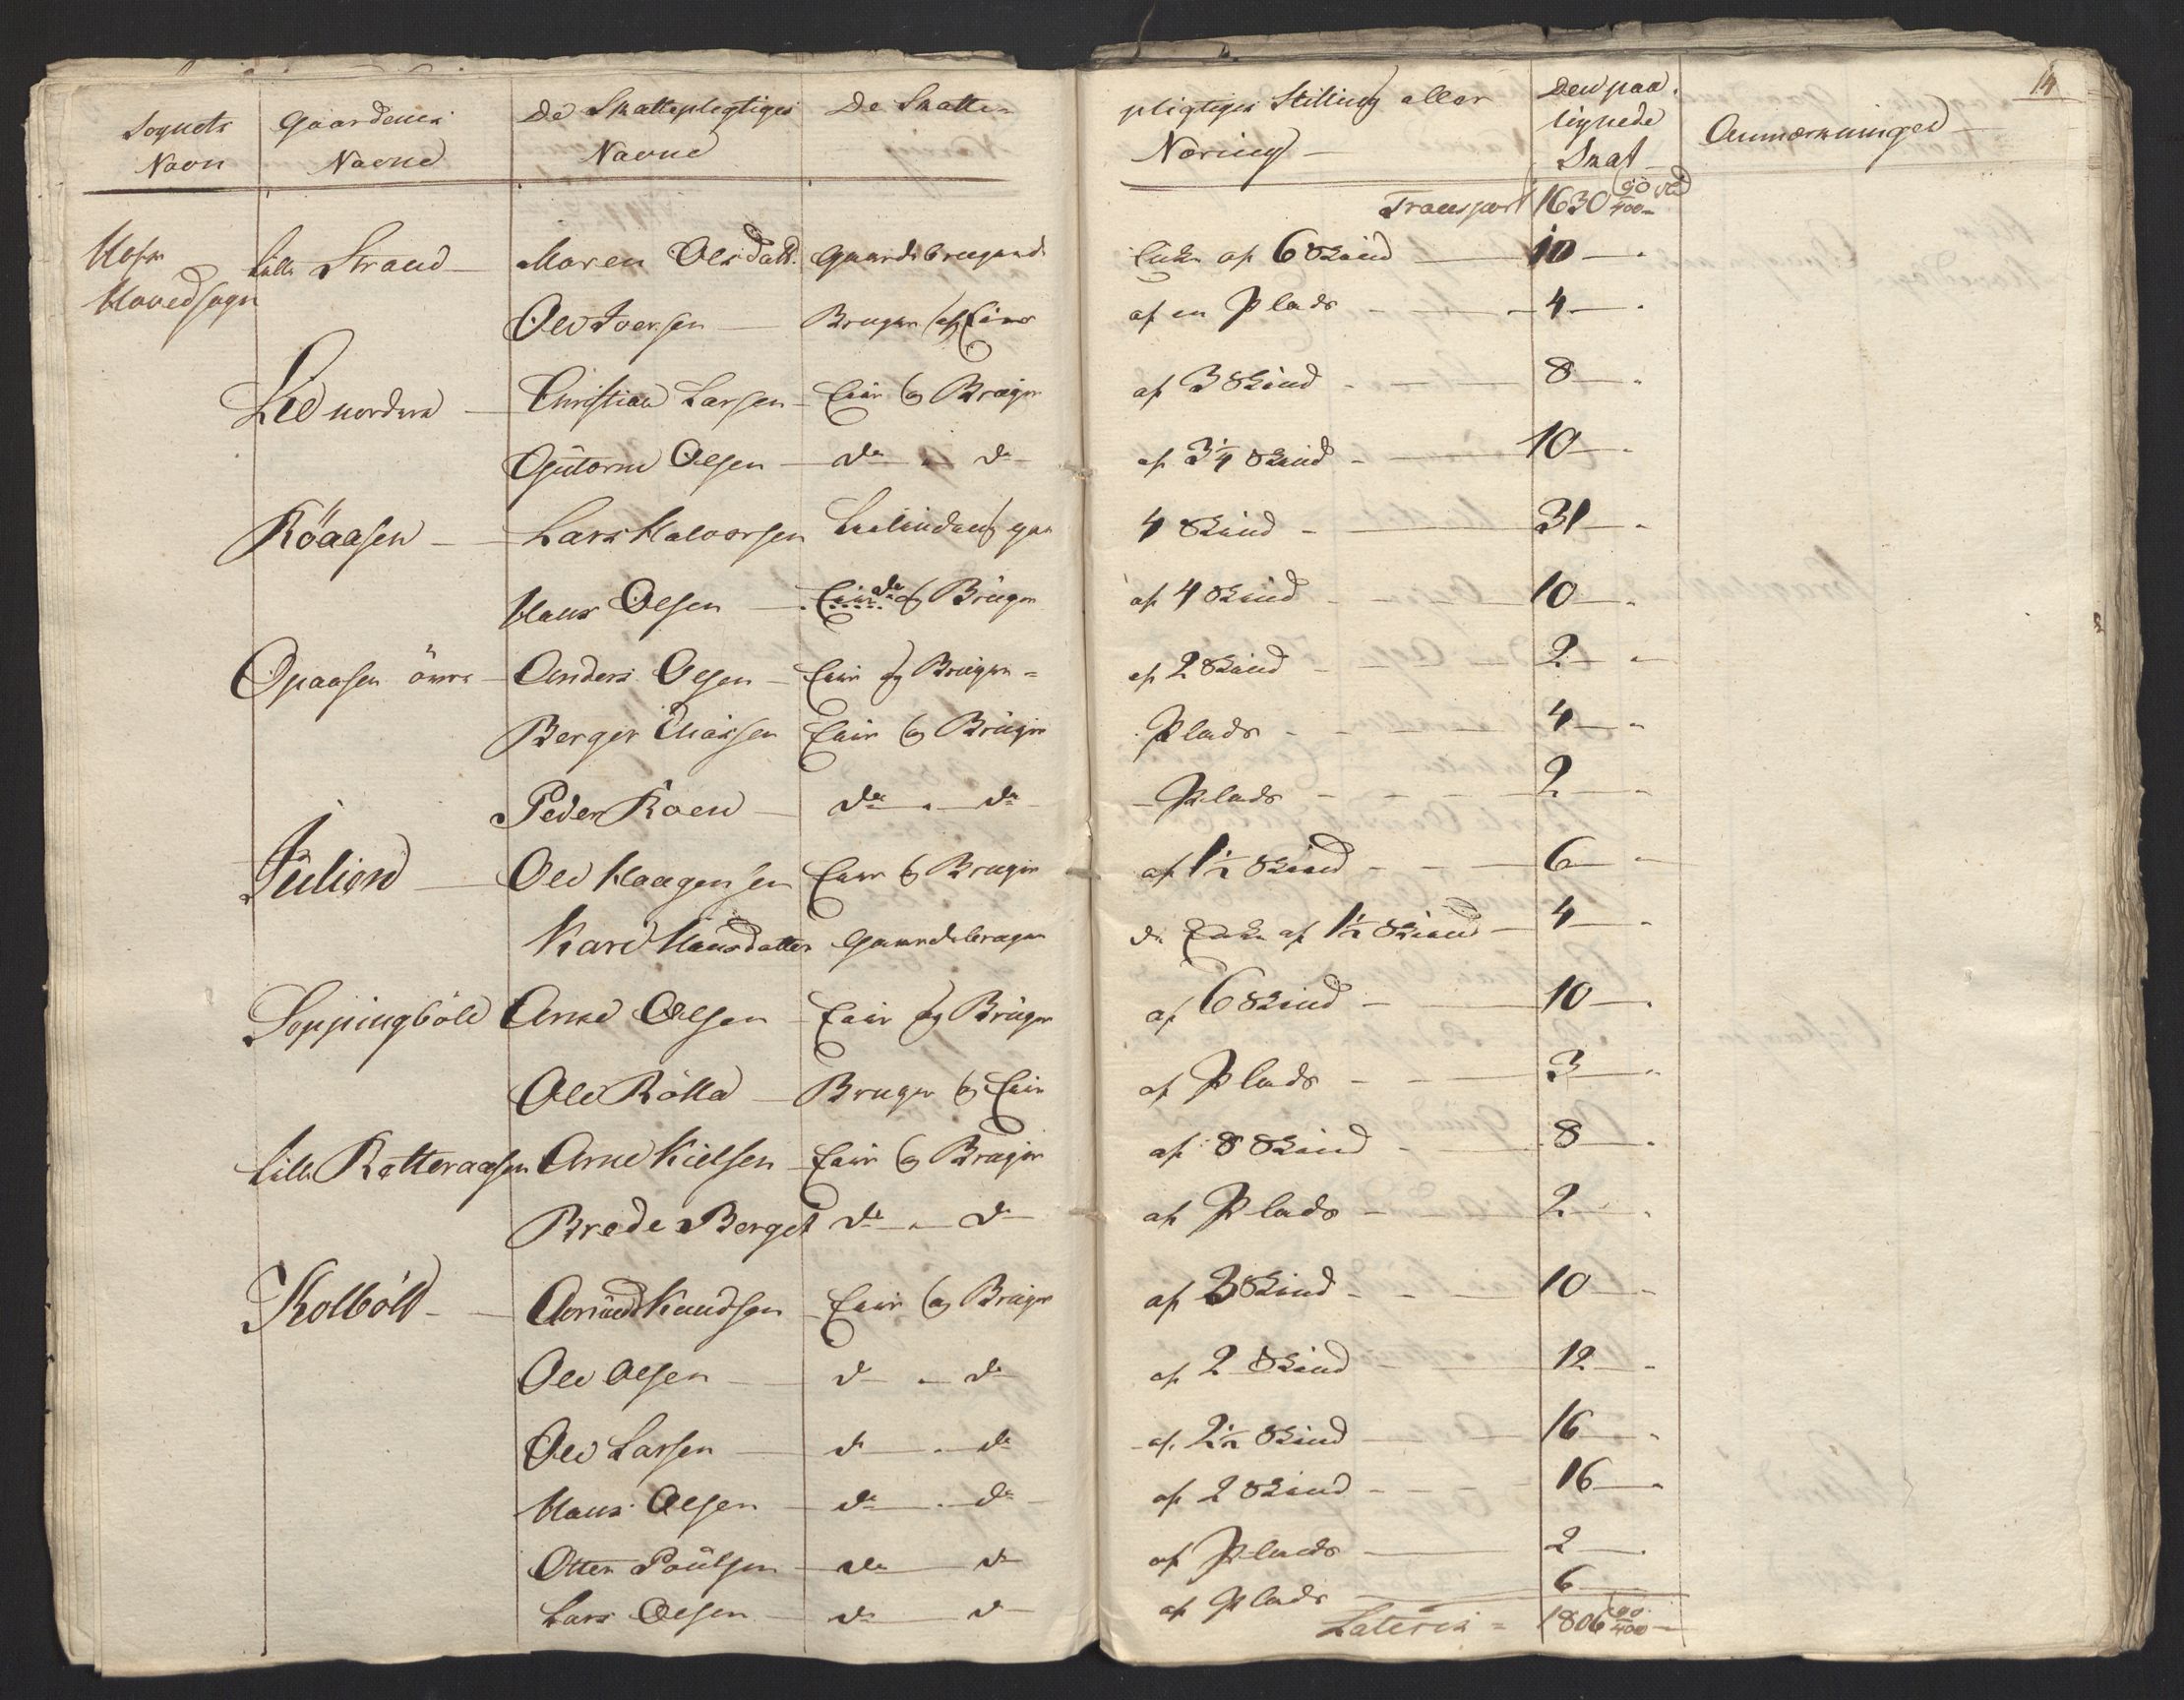 14
Sognets Navn | Gaardenes Navne | De Skattepligtiges Navne | De Skatte- | pligtiges Stilling eller Næring | Den paalignede Skat | Anmærkninger
Transport 1630 90/400
Hovedsogn | Lille Strand | Maren Olsdatt. | Gaardbrugende | Enke af 6 Skind | 10
Ole Iversen | Bruger og Eier | af en Plads | 4
Lie nordre | Christian Larsen | Eier og Bruger | af 3 Skind | 8
Gutorm Olsen | do do | af 3¼ Skind | 10
Röaasen | Lars Halvorsen | 4 Skind | 31
Hans Olsen | do og Bruger | af 4 Skind | 10
Opaasen övre | Anders Olsen | Eier og Bruger | af 2 Skind | 2
Berger Eliassen | Eier og Bruger | Plads | 4
Peder Roen | do do | Plads | 2
Julion | Ole Haagensen | Eier og Bruger | af 1½ Skind | 6
Kari Hansdatter | Gaardbruger | Enke af 1½ Skind | 4
Soppingböle | Arne Olsen | Eier og Bruger | af 6 Skind | 10
Ole Rölla | Bruger og Eier | af Plads | 3
Lille Ratteraasen | Arne Kielsen | Eier og Bruger | af 8 Skind | 8
Brede Berget | do do | af Plads | 2
Kolböle | Amund Knudsen | Eier og Bruger | af 3 Skind | 10
Ole Olsen | do do | af 2 Skind | 12
Ole Larsen | do do | af 2½ Skind | 16
Hans Olsen | do do | af 2 Skind | 16
Otter Poulsen | do do | af Plads | 2
Lars Olsen | do do | af Plads | 6
Lateris 1806 90/400